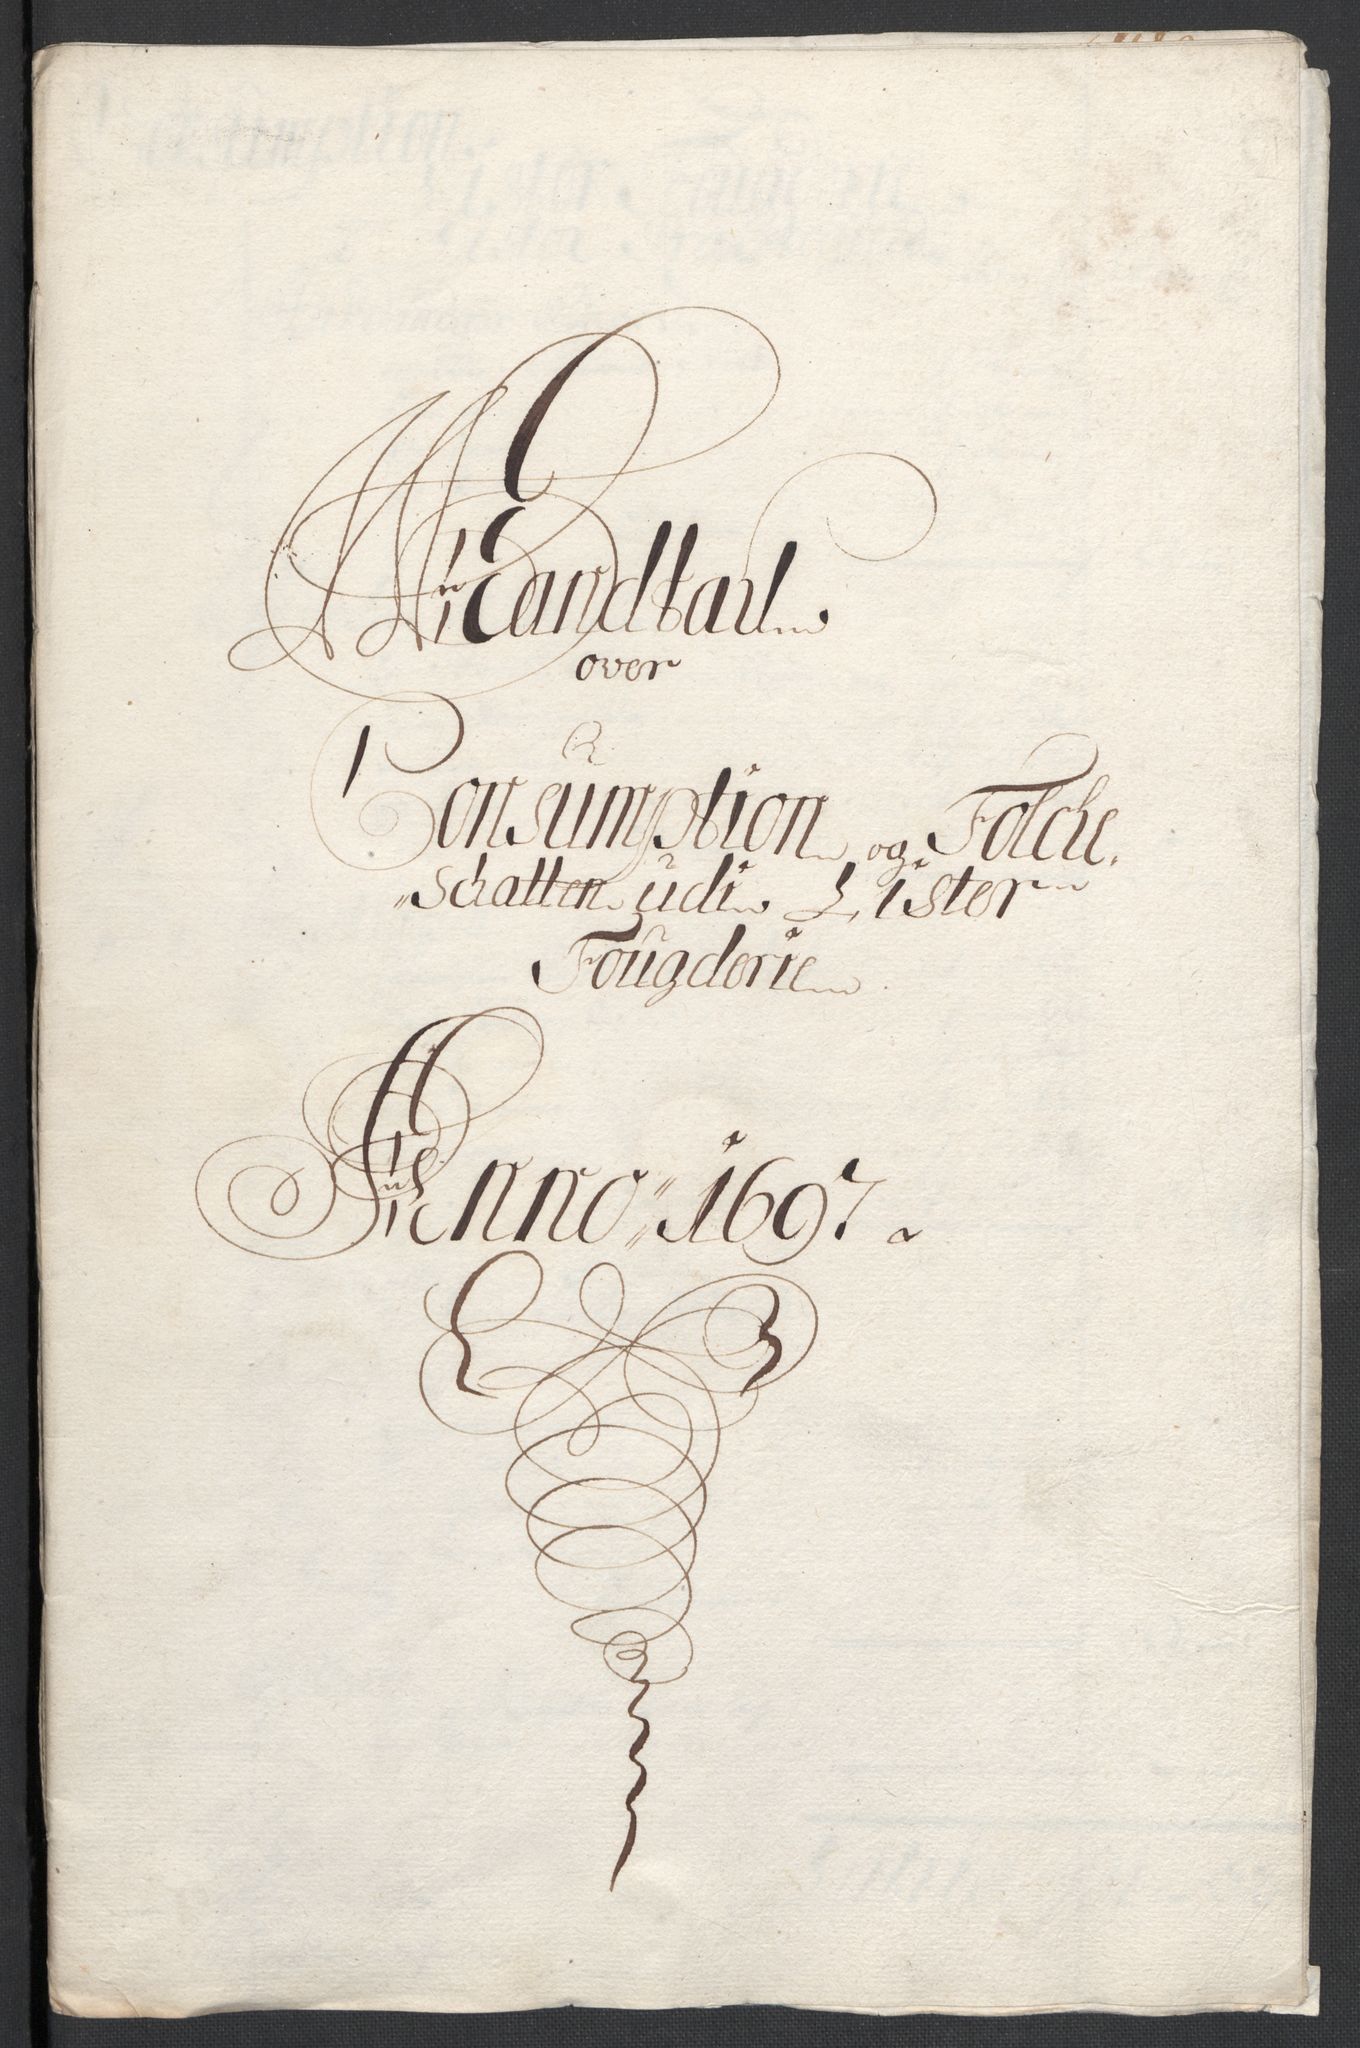 Mandtal
over
Consumption og Folche
Schatten udi Lister
Fougderie
Anno 1697